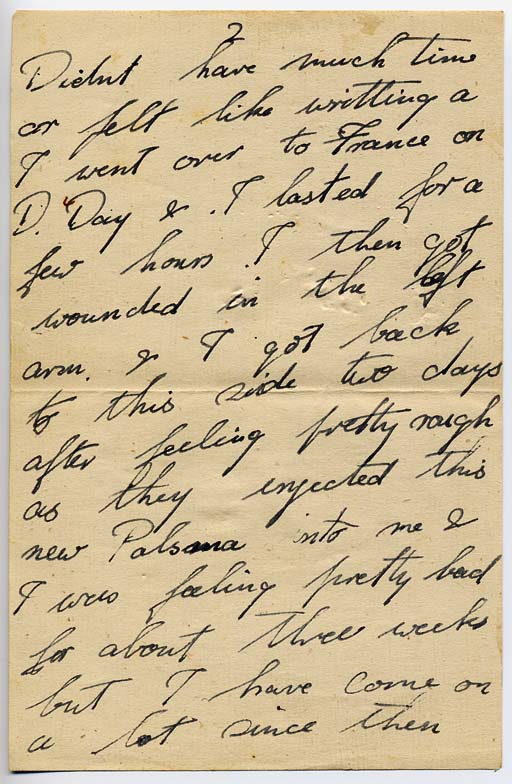 2
Didnt have much time
or felt like writting a
I went over to France on
D. Day & . I lasted for a
few hours . I then got
wounded in the left
arm. & I got back
to this side two days
after feeling pretty rough
as they enjected this
new Palsama into me &
I was feeling pretty bad
for about three weeks
but I have come on
a lot since then